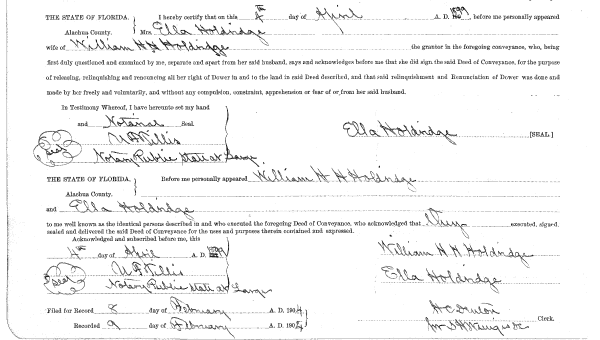 THE STATE OF FLORIDA. I hereby certify that on this 4th day of April A. D. 1899, before me personally appeared
Alachua County. Mrs. Ella Holdridge
wife of William H H Holdridge the grantor in the foregoing conveyance, who, being
first duly questioned and examined by me, separate and apart from her said husband, says and acknowledges before me that she did sign the said Deed of Conveyance, for the purpose
of releasing, relinquishing and renouncing all her right of Dower in and to the land in said Deed described, and that said relinquishment and Renunciation of Dower was done and
made by her freely and voluntarily, and without any compulsion, constraint, apprehension or fear of or from her said husband.
In Testimony Whereof, I have hereunto set my hand
and Notarial Seal.
Ella Holdridge [SEAL]
Seal
Notary Public State at Large
THE STATE OF FLORIDA. Before me personally appeared William H H Holdridge
Alachua County.
and Ella Holdridge
to me well known as the identical persons described in and who executed the foregoing Deed of Conveyance, who acknowledged that they executed, signed,
sealed and delivered the said Deed of Conveyance for the uses and purposes therein contained and expressed.
Acknowledged and subscribed before me, this
4th day of April A. D. 1899
William H H Holdridge
Seal
Ella Holdridge
Notary Public State at Large
Filed for Record 8 day of February A. D. 1904
Clerk.
Recorded 9 day of February A. D. 1904